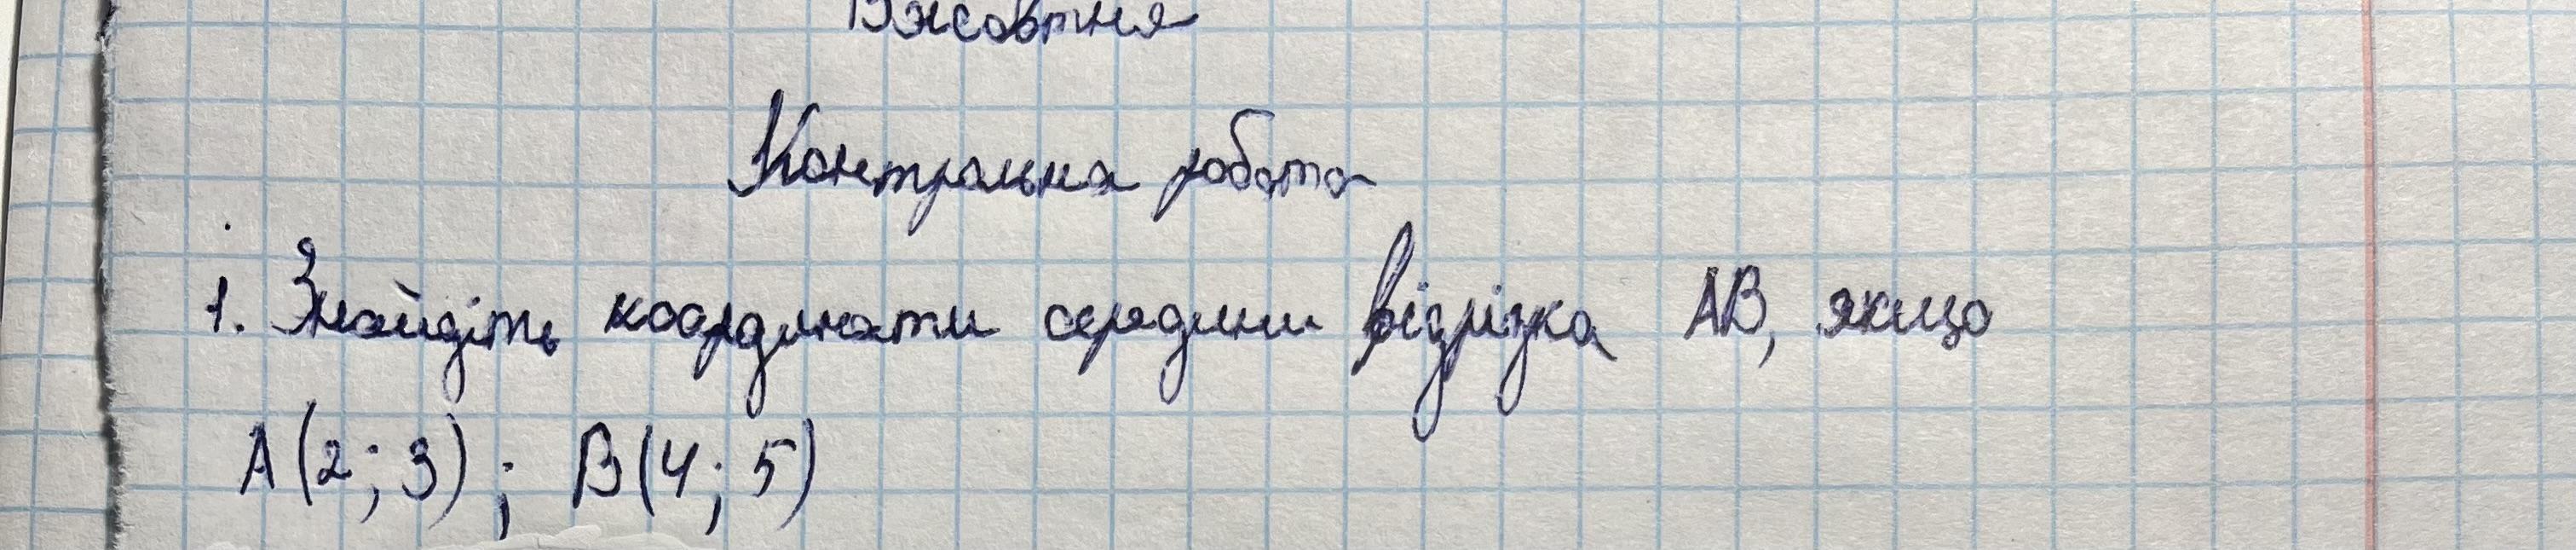 13 жовтня
Контрольна робота
1. Знайдіть координати середини відрізка AB, якщо
A(2; 3); B(4; 5)